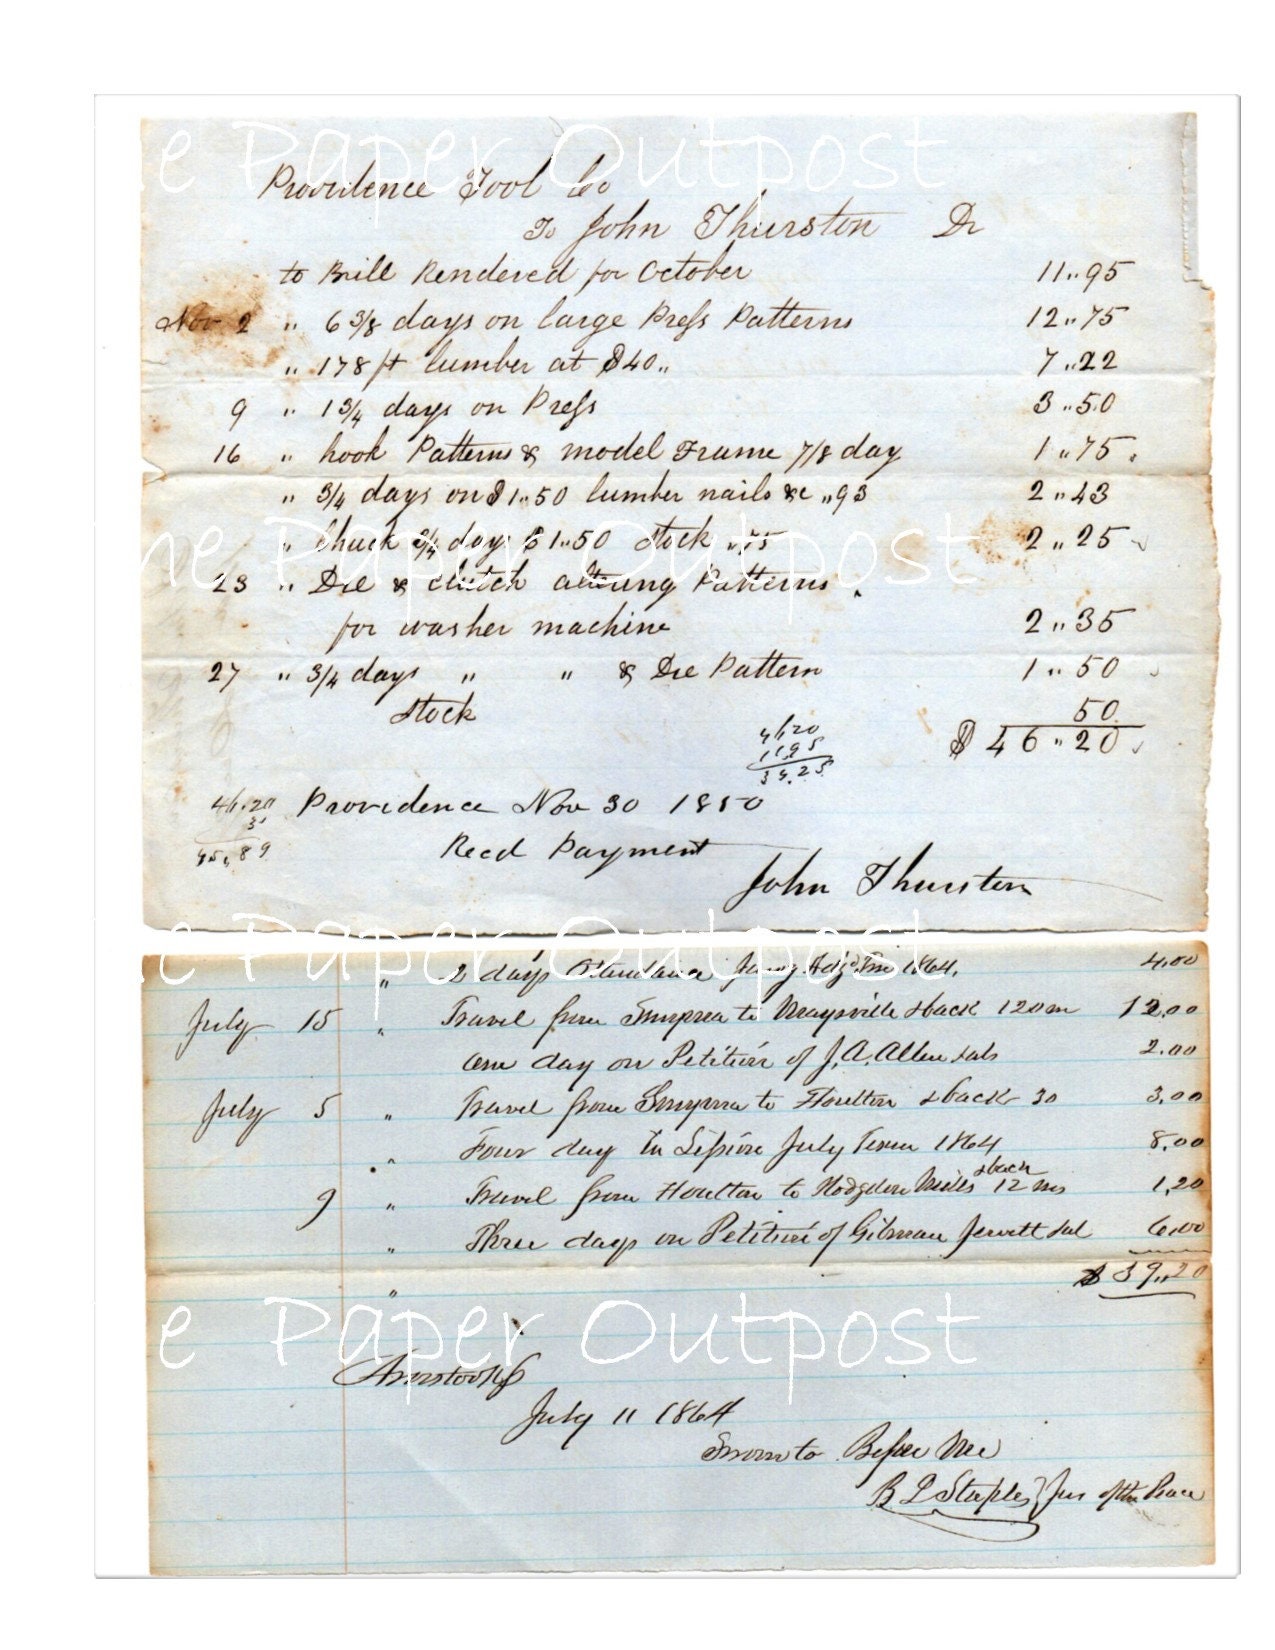 Providence Tool Co
To John Thurston Dr
to Bill Rendered for October 11..95
Nov 2 " 6 3/8 days on large Press Patterns 12..75
" 178 ft lumber at $40.. 7..22
9 " 1 3/4 days on Press 3..50
16 " hook Patterns & model Frame 7/8 day 1..75
" 3/4 days on $1..50 lumber nails &c ..93 2..43
" Chuck 3/4 day $1..50 stock ..75 2..25
23 " Die & clutch altering Patterns
for washer machine 2..35
27 " 3/4 days " " & Die Pattern 1..50
stock 50
$46..20
11.95
34.25
Providence Nov 30 1850
45.89
Recd Payment
John Thurston
" 2 days Attendance 1864. 4.00
July 15 " Travel from Smyrna to Maysville & back 120 m 12.00
" One day on Petition of J. A. Allen & als 2.00
July 5 " Travel from Smyrna to Houlton & back 30 3.00
" Four day in Session July Term 1864 8.00
9 " Travel from Houlton to Hodgdon Mills & back 12 ms 1,20
" Three days on Petition of Gilman Jewett & al 6.00
" $39..20
Aroostook
July 11 1864
Sworn to Before Me
B L Staples Jus of the Peace
The Paper Outpost
The Paper Outpost
The Paper Outpost
The Paper Outpost